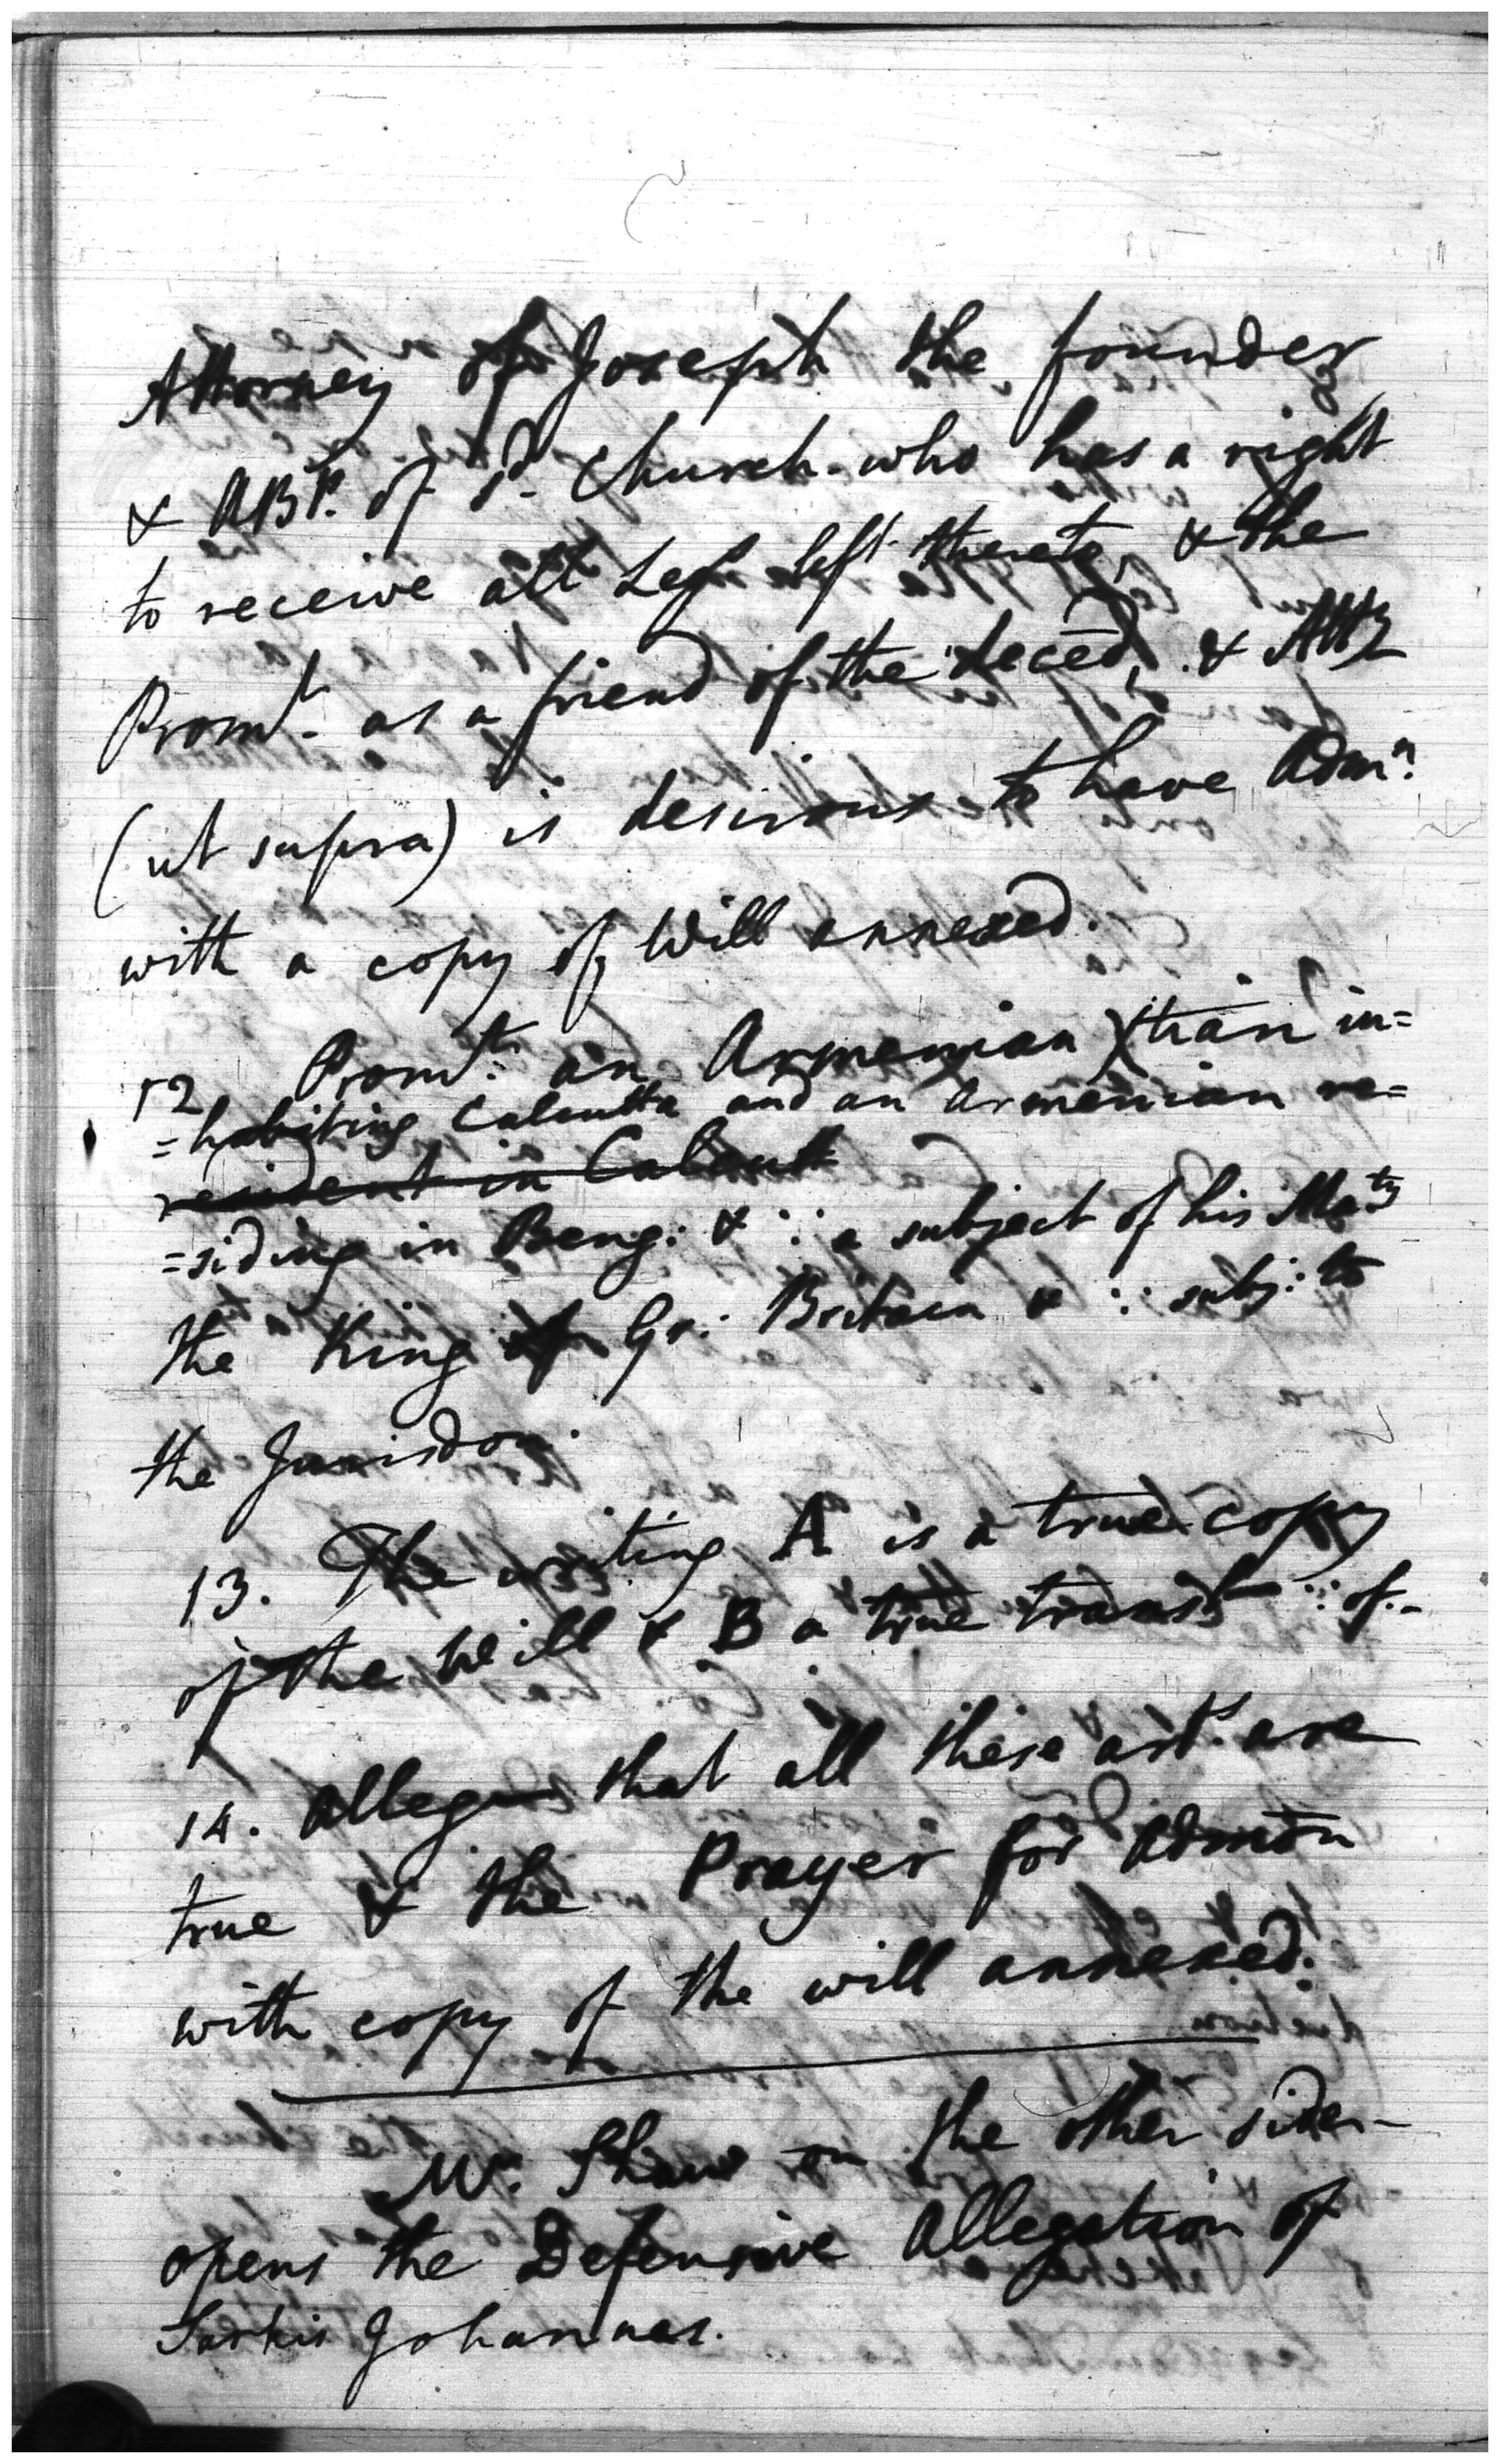 Attorney of Joseph the founder
& ABP. of sd. Church - who has a right
to receive all Legs left thereto, & the
Promt. as a friend of the deced, & Atty
(ut supra) is desirous to have Admn.
with a copy of Will annexed.
12 Promt. an Armenian Xtian in=
=habiting Calcutta and an Armenian re=
resident in Calcutt
=siding in Beng: & ∵ a subject of his Maty
the King of Gr: Britain & ∵ subj: to
the Jurisdon.
13. The writing A is a true copy
of the Will & B a true transl of.-
14. Alleges that all these arts. are
true & the Prayer for Admon
with copy of the will annexed.
Mr. Shaw on the other side -
opens the Defensive Allegation of
Sarkis Johannes.